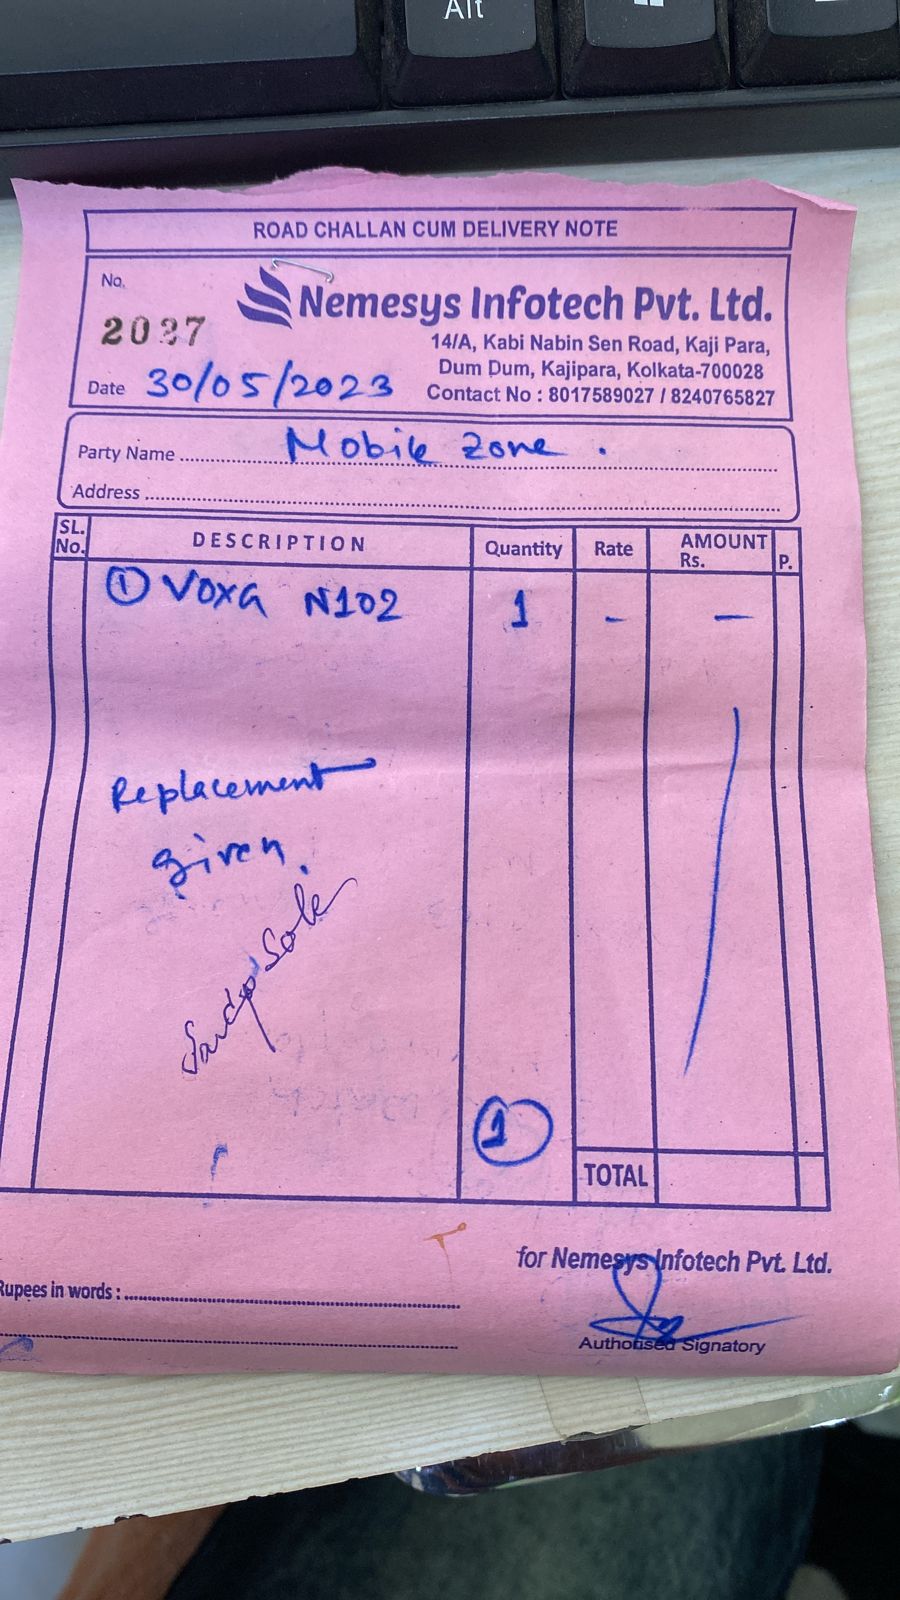 Alt
ROAD CHALLAN CUM DELIVERY NOTE
No.
Nemesys Infotech Pvt. Ltd.
2037
14/A, Kabi Nabin Sen Road, Kaji Para,
Dum Dum, Kajipara, Kolkata-700028
Date 30/05/2023
Contact No : 8017589027 / 8240765827
Party Name Mobile Zone .
Address
SL. No. DESCRIPTION Quantity Rate AMOUNT Rs. P.
① VOXA N102 1 - -
Replacement
given.
1
TOTAL
for Nemesys Infotech Pvt. Ltd.
Rupees in words :
Authorised Signatory